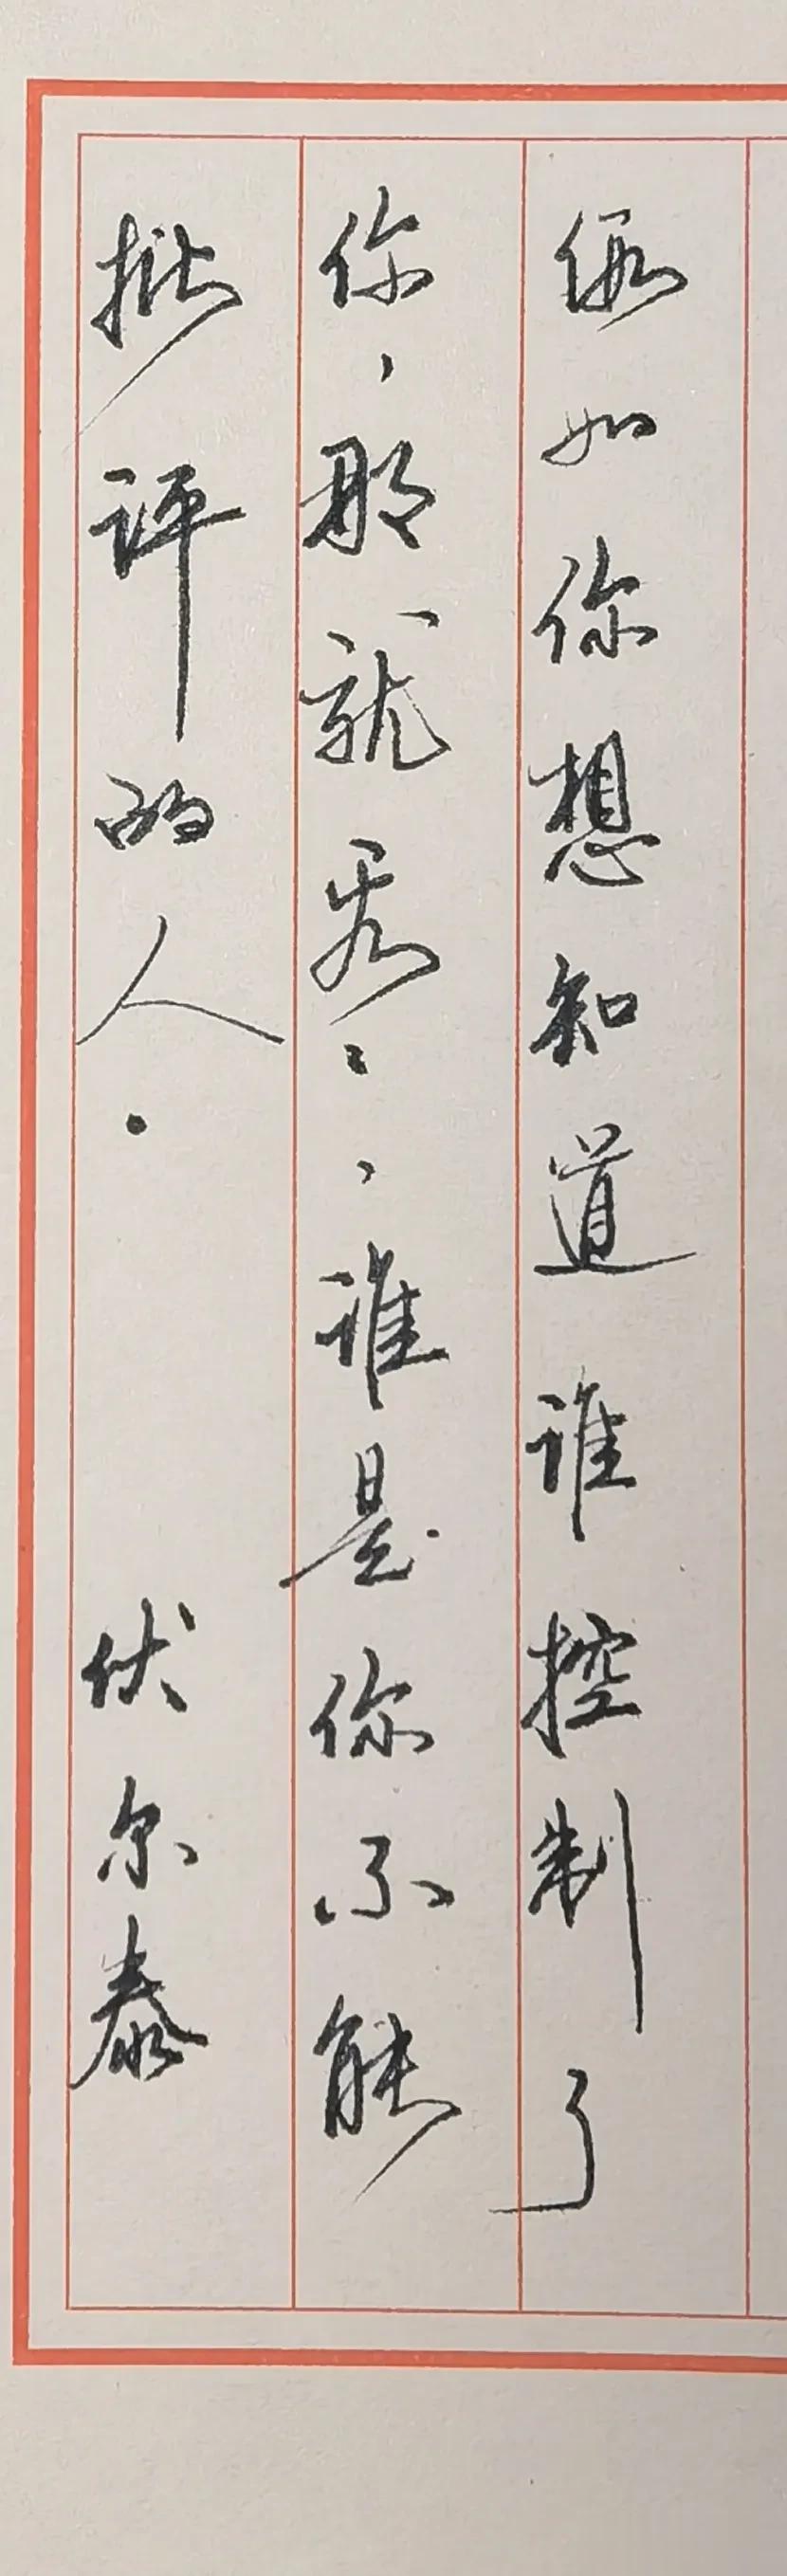 假如你想知道谁控制了
你，那就看看，谁是你不能
批评的人.
伏尔泰